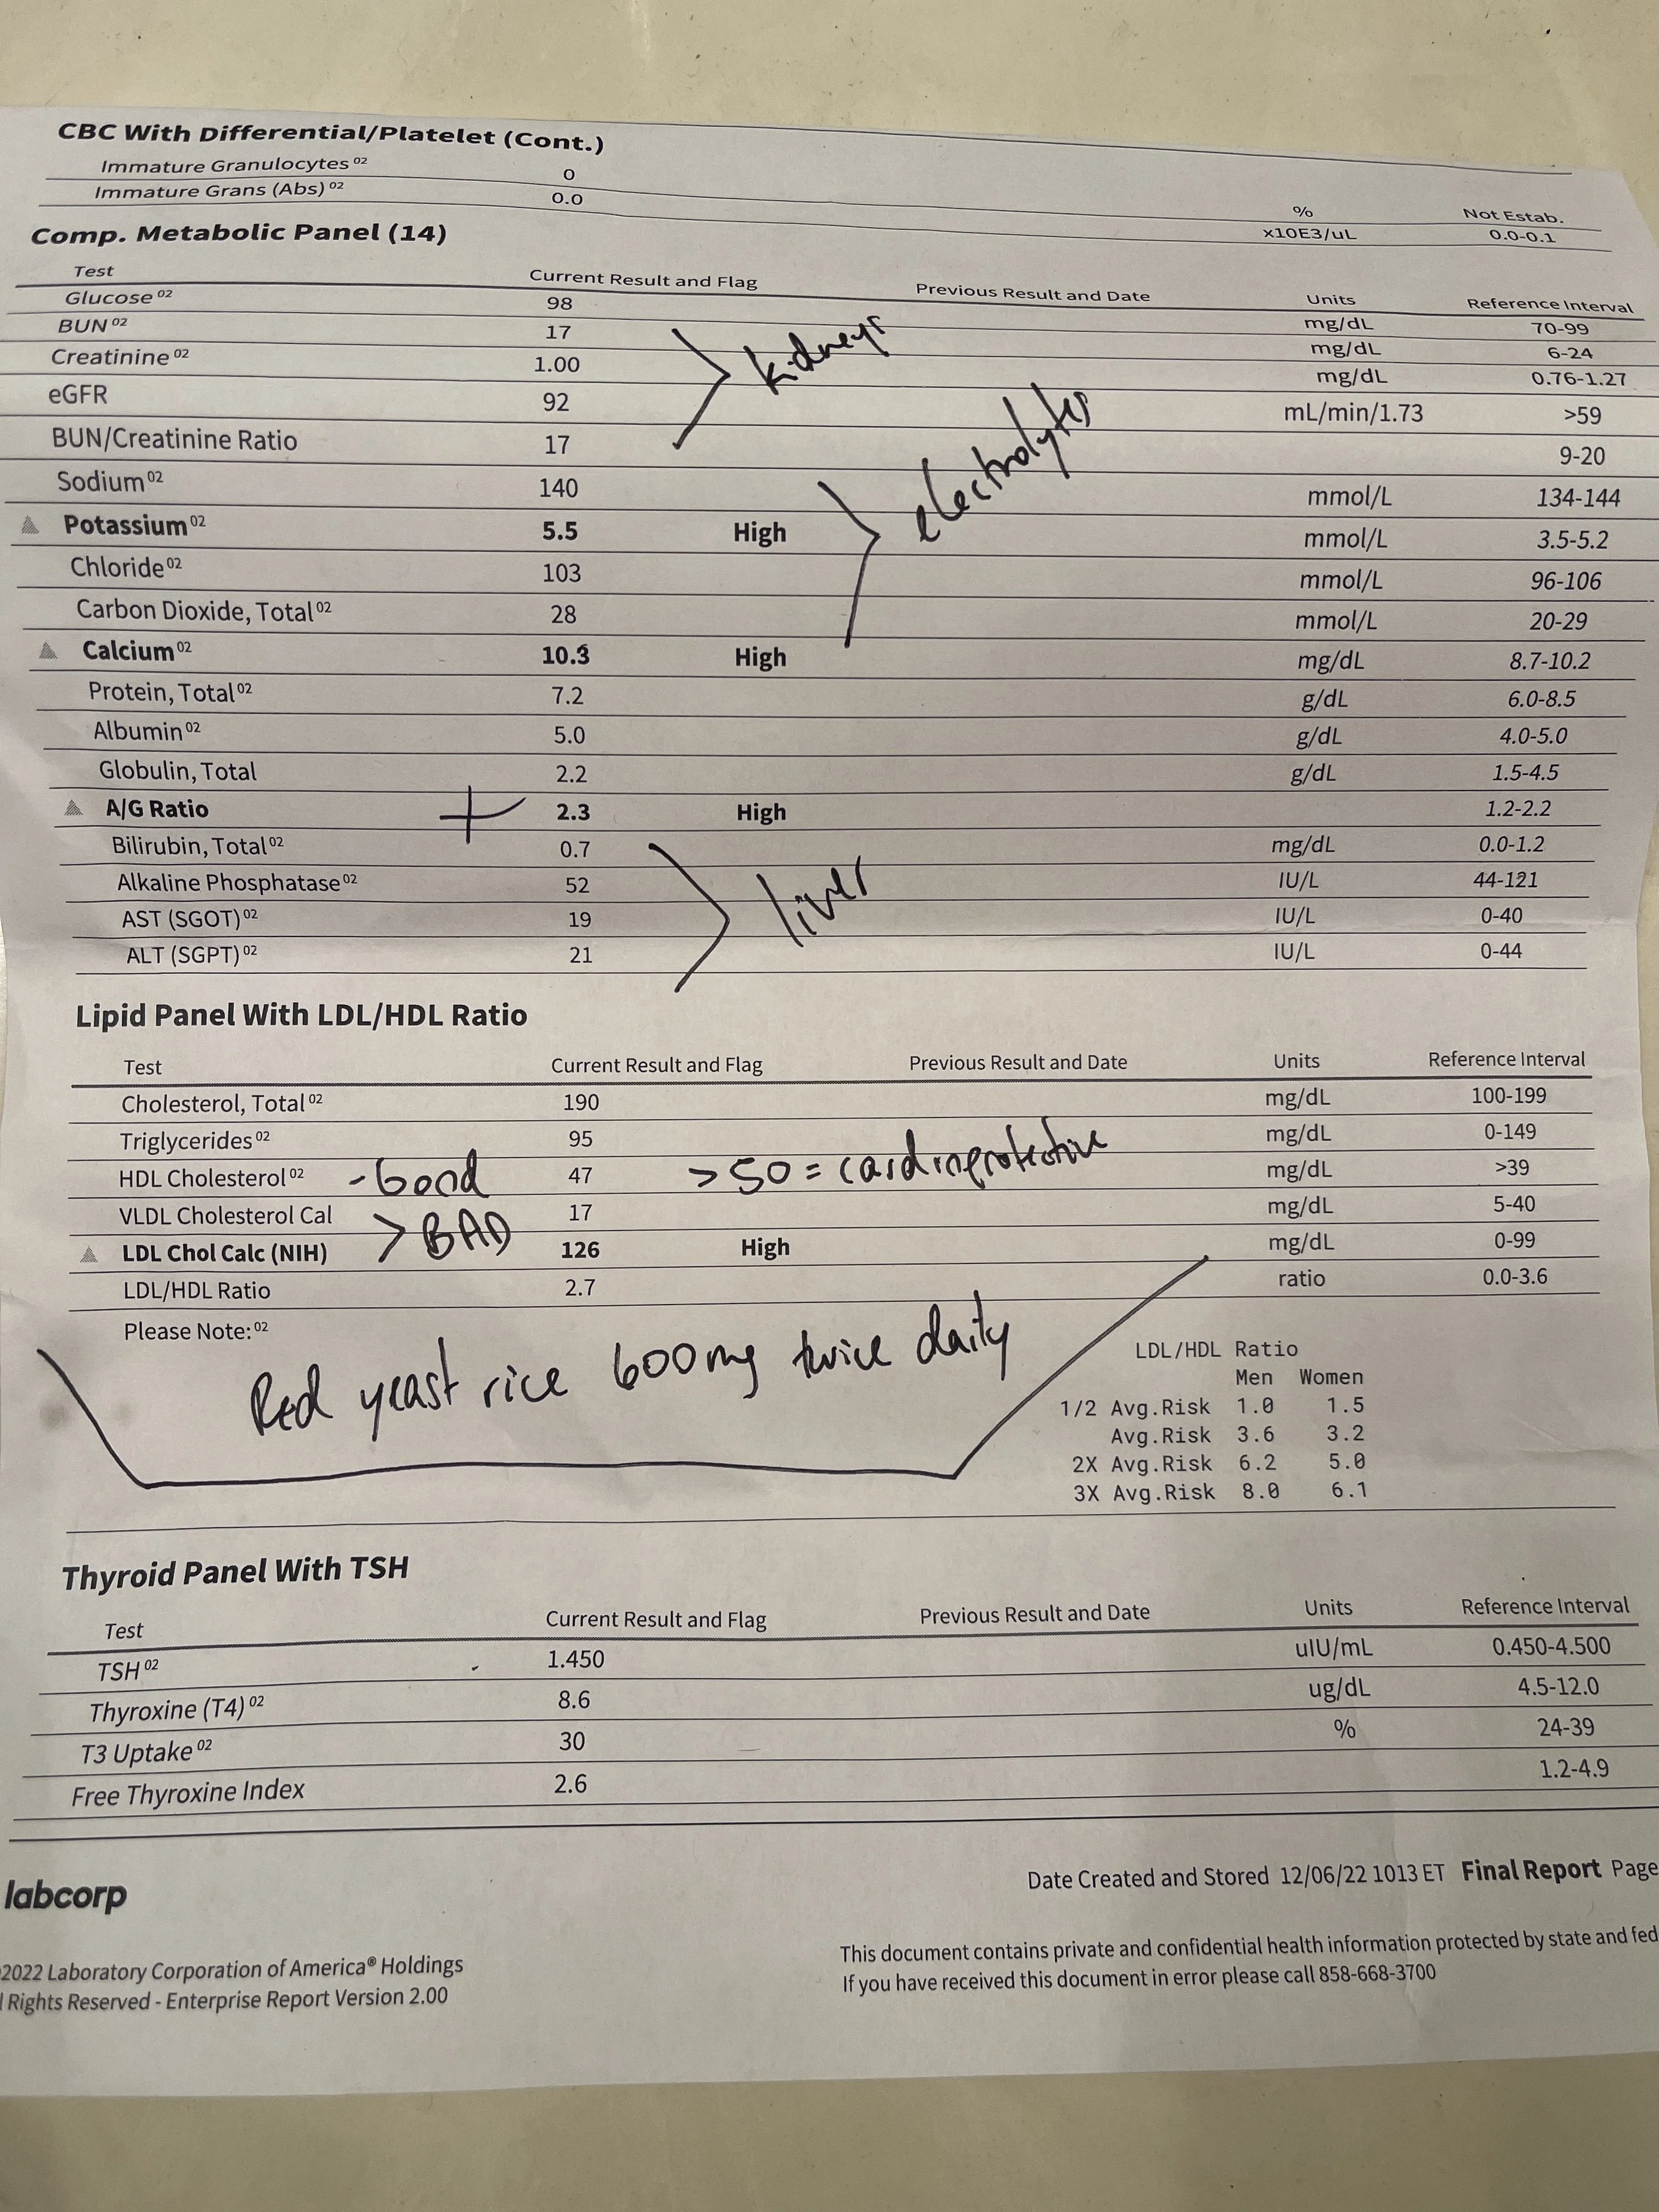 CBC With Differential/Platelet (Cont.)
Immature Granulocytes 02 0 % Not Estab.
Immature Grans (Abs) 02 0.0 x10E3/uL 0.0-0.1
Comp. Metabolic Panel (14)
Test Current Result and Flag Previous Result and Date Units Reference Interval
Glucose 02 98 mg/dL 70-99
BUN 02 17 mg/dL 6-24
kidneys
Creatinine 02 1.00 mg/dL 0.76-1.27
eGFR 92 mL/min/1.73 >59
BUN/Creatinine Ratio 17 9-20
Sodium 02 140 mmol/L 134-144
electrolytes
Potassium 02 5.5 High mmol/L 3.5-5.2
Chloride 02 103 mmol/L 96-106
Carbon Dioxide, Total 02 28 mmol/L 20-29
Calcium 02 10.3 High mg/dL 8.7-10.2
Protein, Total 02 7.2 g/dL 6.0-8.5
Albumin 02 5.0 g/dL 4.0-5.0
Globulin, Total 2.2 g/dL 1.5-4.5
A/G Ratio 2.3 High 1.2-2.2
Bilirubin, Total 02 0.7 mg/dL 0.0-1.2
Alkaline Phosphatase 02 52 IU/L 44-121
liver
AST (SGOT) 02 19 IU/L 0-40
ALT (SGPT) 02 21 IU/L 0-44
Lipid Panel With LDL/HDL Ratio
Test Current Result and Flag Previous Result and Date Units Reference Interval
Cholesterol, Total 02 190 mg/dL 100-199
Triglycerides 02 95 mg/dL 0-149
HDL Cholesterol 02 - Good 47 >50 = cardioprotective mg/dL >39
VLDL Cholesterol Cal 17 mg/dL 5-40
> BAD
LDL Chol Calc (NIH) 126 High mg/dL 0-99
LDL/HDL Ratio 2.7 ratio 0.0-3.6
Please Note: 02
Red yeast rice 600mg twice daily
LDL/HDL Ratio
Men Women
1/2 Avg.Risk 1.0 1.5
Avg.Risk 3.6 3.2
2X Avg.Risk 6.2 5.0
3X Avg.Risk 8.0 6.1
Thyroid Panel With TSH
Test Current Result and Flag Previous Result and Date Units Reference Interval
TSH 02 1.450 uIU/mL 0.450-4.500
Thyroxine (T4) 02 8.6 ug/dL 4.5-12.0
T3 Uptake 02 30 % 24-39
Free Thyroxine Index 2.6 1.2-4.9
labcorp
Date Created and Stored 12/06/22 1013 ET Final Report Page
2022 Laboratory Corporation of America® Holdings
l Rights Reserved - Enterprise Report Version 2.00
This document contains private and confidential health information protected by state and fed
If you have received this document in error please call 858-668-3700